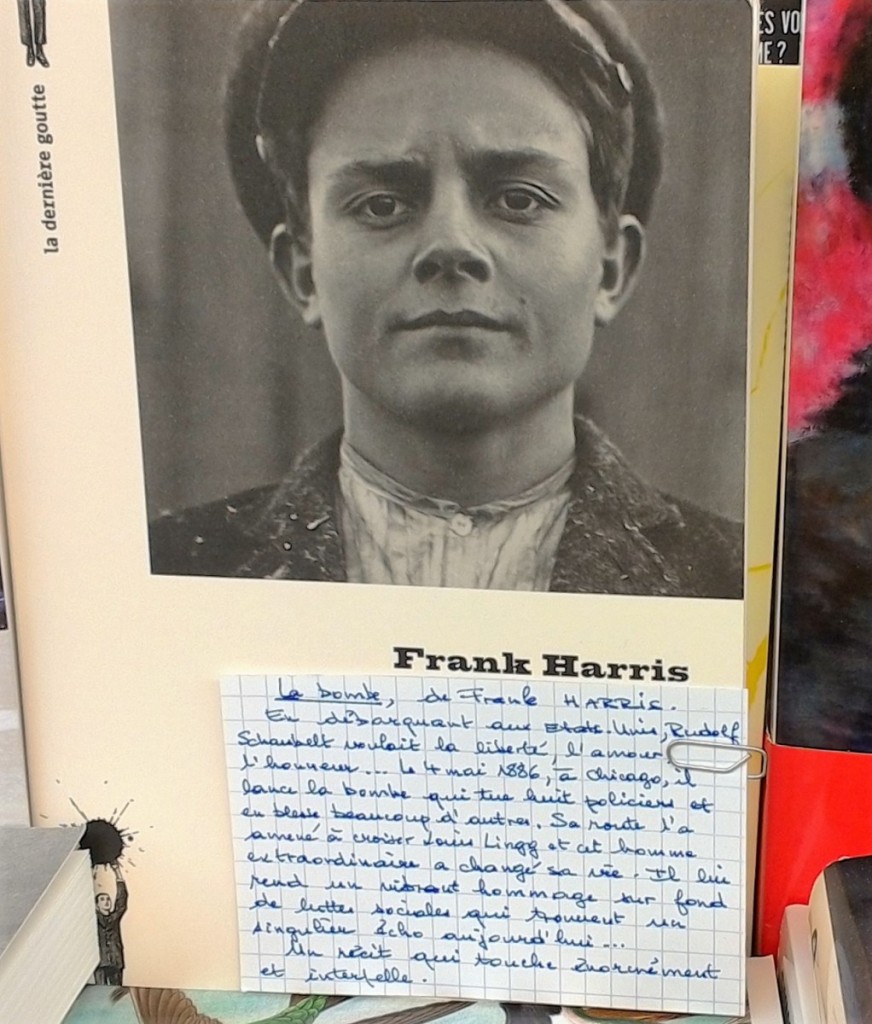 la dernière goutte
ES VO
ME ?
Frank Harris
La bombe, de Frank HARRIS.
En débarquant aux Etats-Unis, Rudolf
Schaubelt voulait la liberté, l'amour
l'honneur... Le 4 mai 1886, à Chicago, il
lance la bombe qui tue huit policiers et
en blesse beaucoup d'autres. Sa route l'a
amené à croiser Louis Lingg et cet homme
extraordinaire a changé sa vie. Il lui
rend un vibrant hommage sur fond
de luttes sociales qui trouvent un
singulier écho aujourd'hui...
Un récit qui touche énormément
et interpelle.